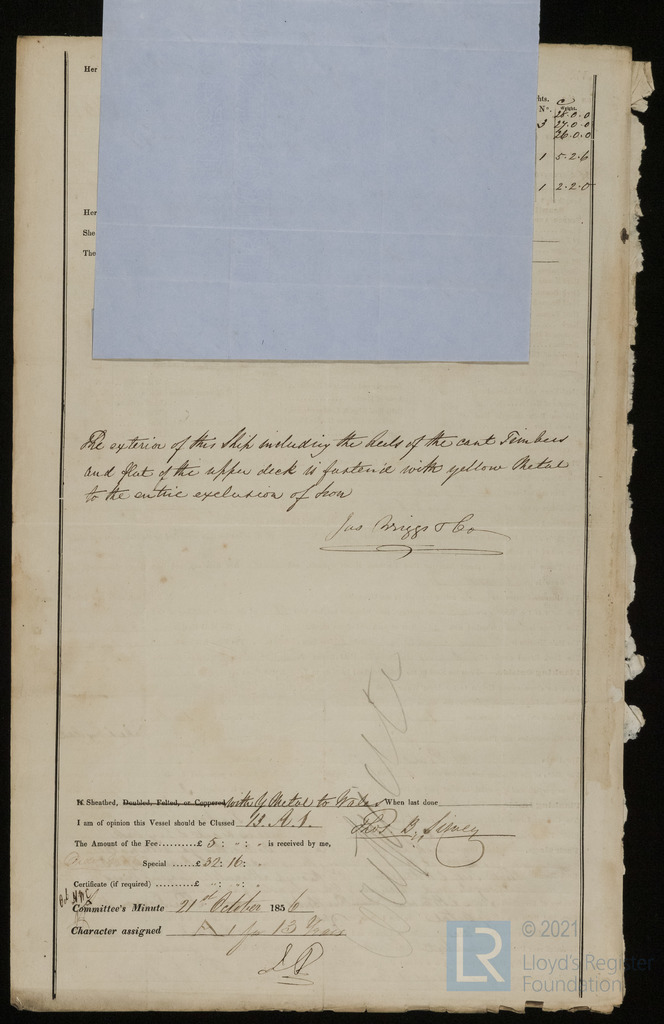 Her
hts.
No. Cwts.
28.0.0
3 27.0.0
26.0.0
1 5.2.6
1 2.2.0
Her
She
The
The exterior of this Ship including the heels of the cant Timbers
and flat of the upper deck is fastened with yellow Metal
to the entire exclusion of Iron
Jas Briggs & Co
If Sheathed, Doubled, Felted, or Coppered with Y Metal to When last done
I am of opinion this Vessel should be Classed 13. A. 1.
The Amount of the Fee..........£ 5 : " : " is received by me,
Special ......£ 32: 16: "
Certificate (if required) ......£ " : " : "
Committee's Minute 21st October 1856
Character assigned A 1 for 13 Years
© 2021
LR Lloyd's Register
Foundation